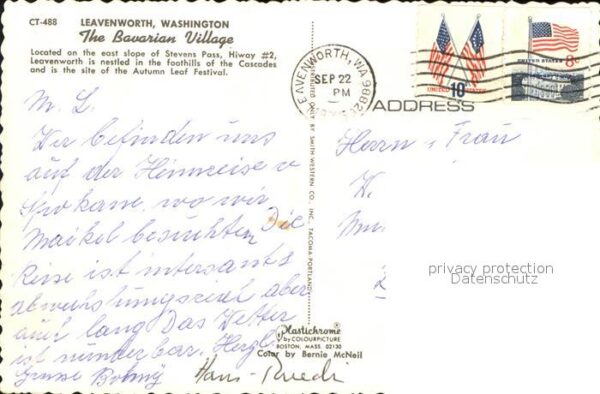 CT-488 LEAVENWORTH, WASHINGTON
The Bavarian Village
Located on the east slope of Stevens Pass, Hiway #2,
Leavenworth is nestled in the foothills of the Cascades
and is the site of the Autumn Leaf Festival.
M. L.
Wir befinden uns
auf der Heimreise v
Spokane, wo wir
Maikel besuchten Die
Reise ist intersants
abwechslungsreich aber
auch lang Das Wetter
ist wunderbar. Herzl.
Grüsse
Hans-Ruedi
LEAVENWORTH, WA 9882
SEP 22
PM
10c
UNITED STATES
UNITED STATES 8c
ADDRESS
Herrn u Frau
DISTRIBUTED ONLY BY SMITH WESTERN CO., INC., TACOMA-PORTLAND
Plastichrome®
by COLOURPICTURE
BOSTON, MASS. 02130
Color by Bernie McNeil
privacy protection
Datenschutz